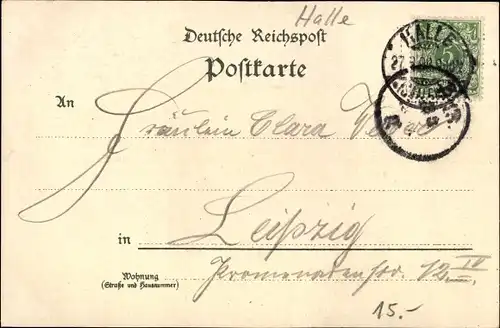 Halle
Deutsche Reichspost
Postkarte
HALLE
27
An
Fräulein Clara
Leipzig
in
Wohnung
(Straße und Hausnummer)
Promenadenstr. 12 IV
15.-